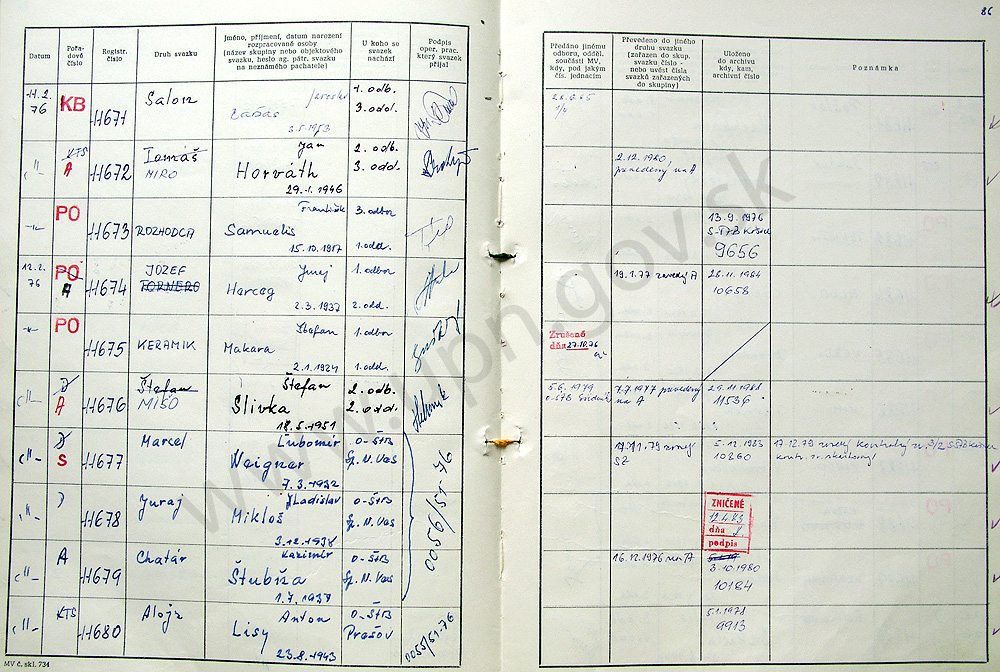 86
Datum
Pořadové číslo
Registr. číslo
Druh svazku
Jméno, příjmení, datum narození rozpracované osoby (název skupiny nebo objektového svazku, heslo ag. pátr. svazku na neznámého pachatele)
U koho se svazek nachází
Podpis oper. prac. který svazek přijal
Předáno jinému odboru, odděl. součásti MV, kdy, pod jakým čís. jednacím
Převedeno do jiného druhu svazku (zařazen do skup. svazku číslo - nebo uvést čísla svazků zařazených do skupiny)
Uloženo do archivu kdy, kam, archivní číslo
Poznámka
11.2. 76 KB 11671 Salon
3.5.1953
1. odb. 3. odd.
KTS A 11672 Tomáš MIRO
Ján Horváth 29.1.1946
2. odb. 3. odd.
2.12.1980
PO 11673 ROZHODCA
František Samuelis 15.10.1917
3. odbor 1. odd.
13.9.1976
9656
12.2. 76 PO A 11674 JÓZEF TORNERO
Juraj Herceg 2.3.1937
1. odbor 2. odd.
19.1.77
28.11.1984 10658
PO 11675 KERAMIK
Štefan Makara 2.1.1924
1. odbor 1. odd.
Zrušené dňa 27.10.76
A 11676 Štefan MIŠO
Štefan Slivka 18.5.1951
2. odb. 2. odd.
5.6.1979
7.7.1977
29.11.1988 11536
S 11677 Marcel
Ľubomír Weigner 7.3.1932
O-ŠtB Sp. N. Ves
0056/51-76
5.12.1983 10860
17.12.79
11678 Juraj
Ladislav Mikloš 3.12.1938
O-ŠtB Sp. N. Ves
ZNIČENÉ
12.4.83
dňa
podpis
A 11679 Chatár
Kazimír Štubňa 1.7.1937
O-ŠtB Sp. N. Ves
16.12.1976
3.10.1980 10184
KTS 11680 Alojz
Anton Lisy 23.8.1943
O-ŠtB Prešov
0055/51-76
5.1.1978 9913
MV č. skl. 734
www.upn.gov.sk